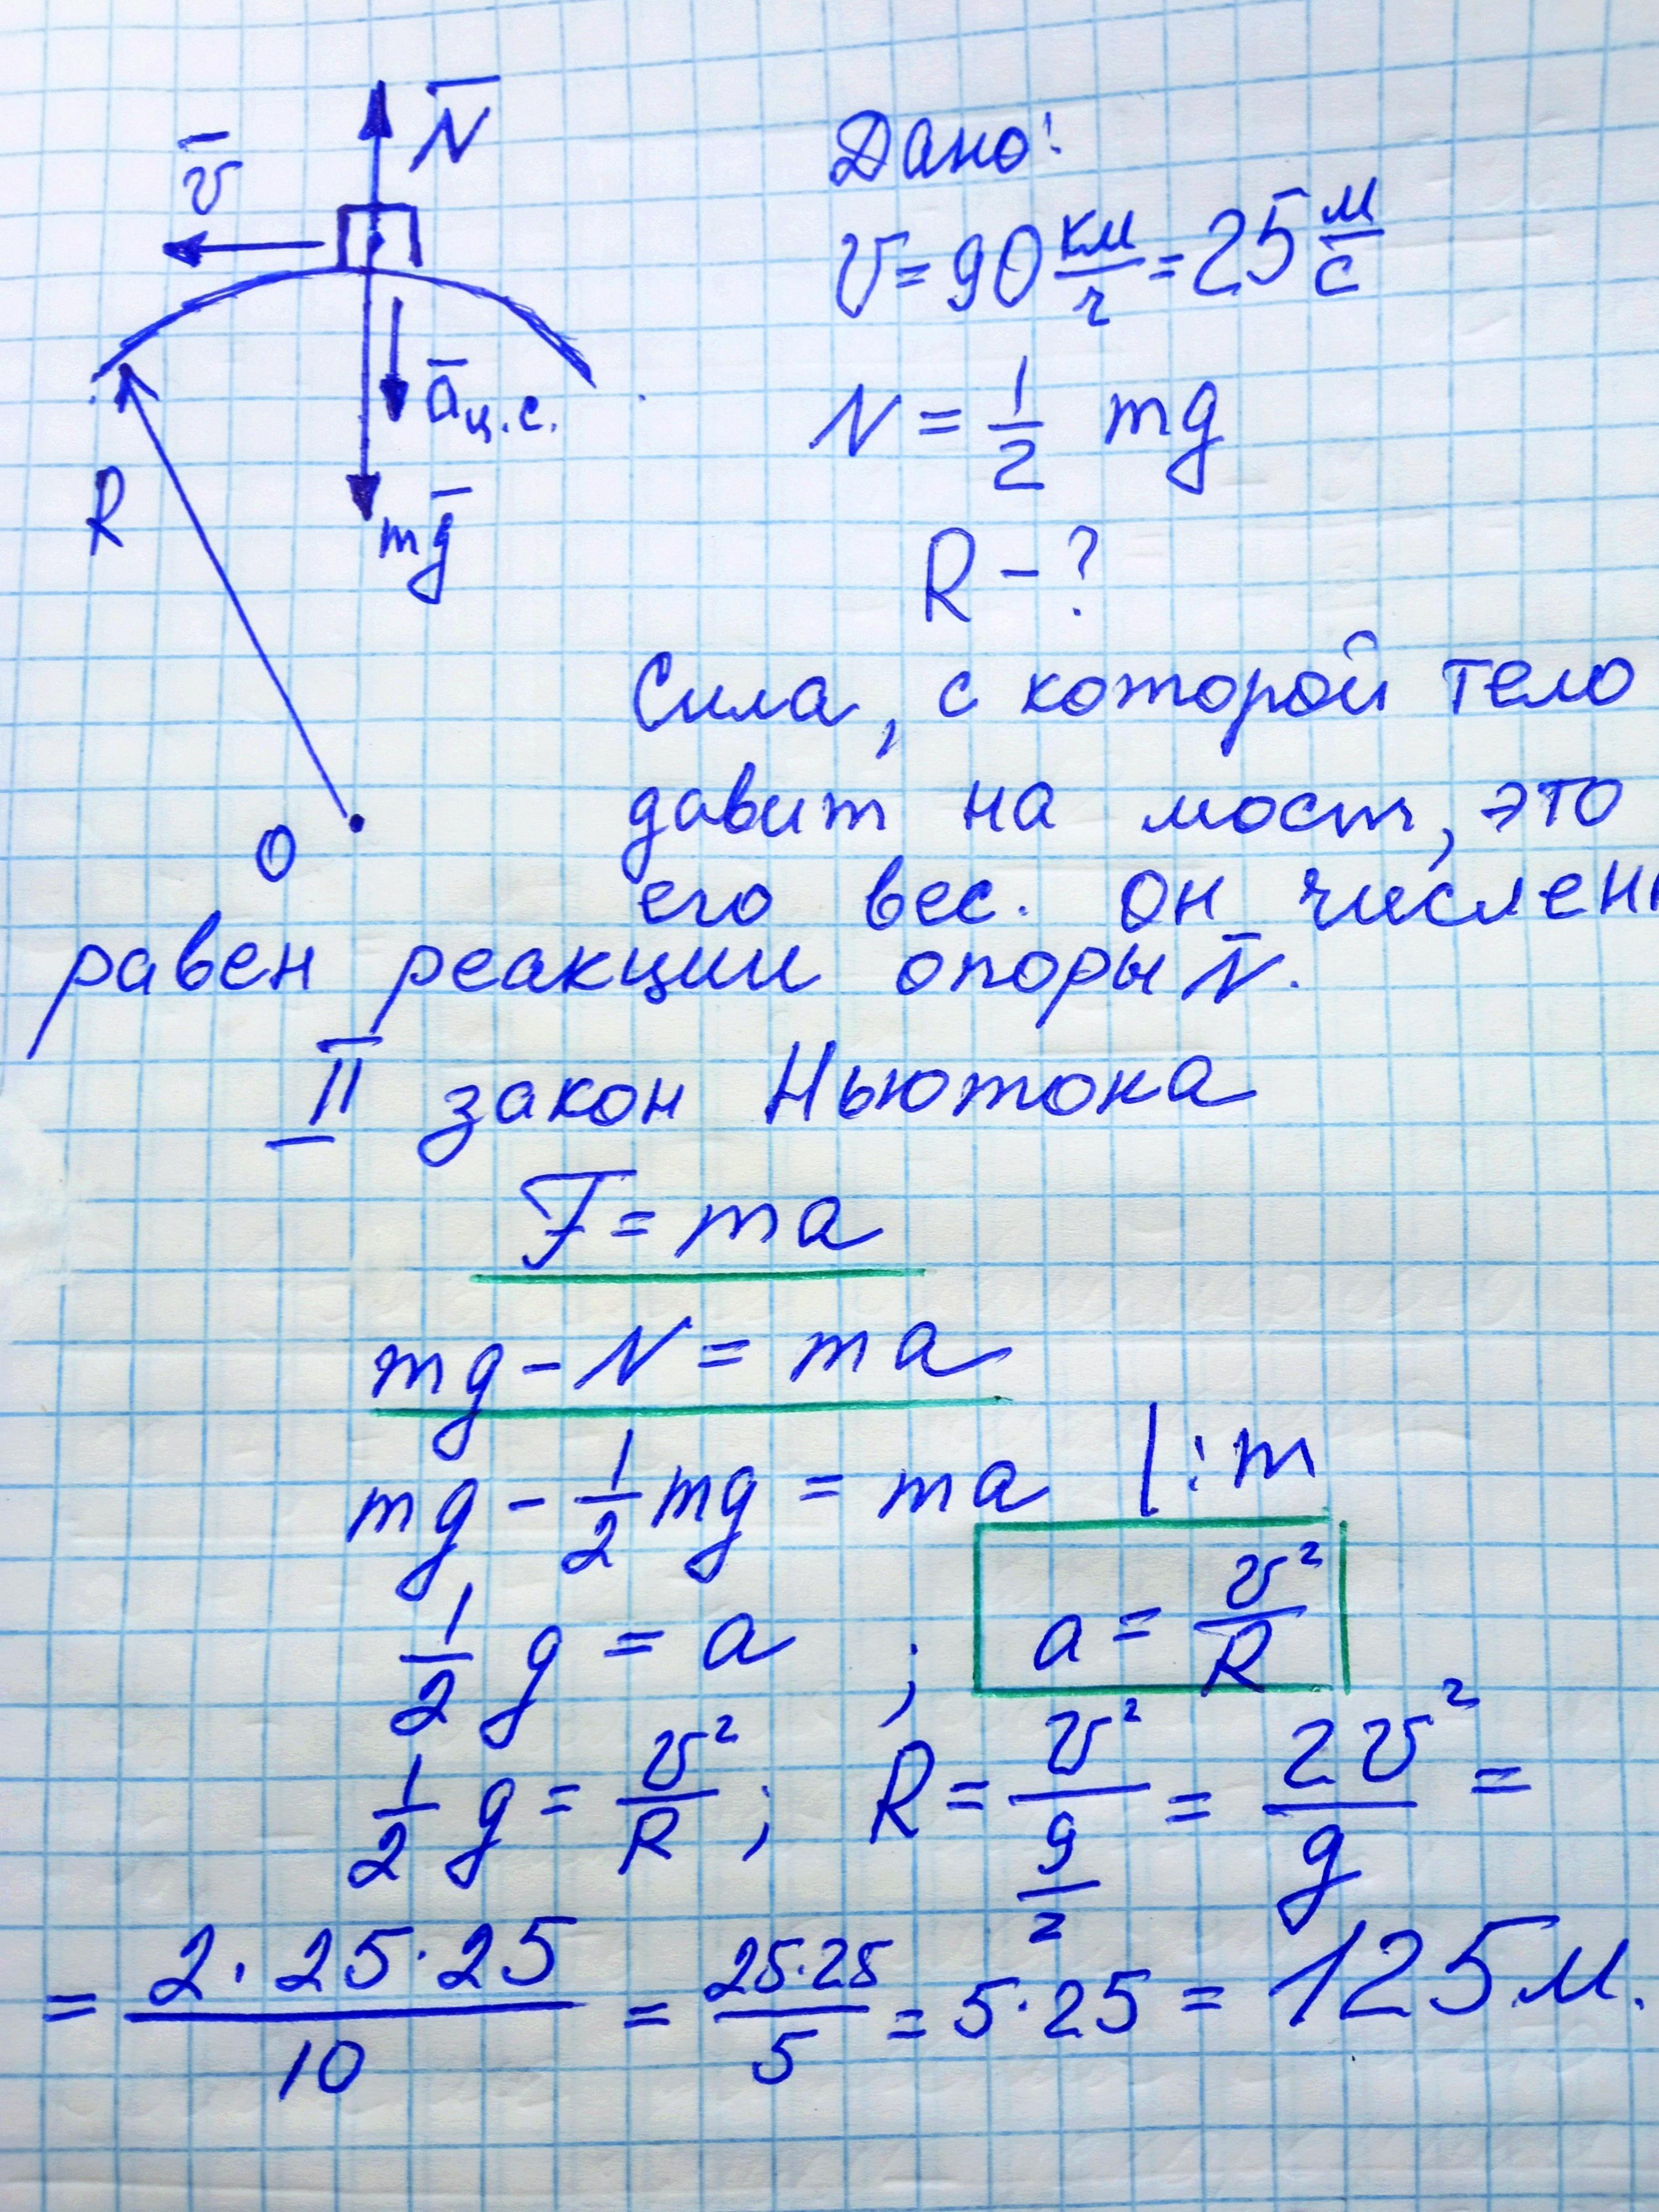 N̅
v̅
a̅ц.с.
mg̅
R
O
Дано:
v = 90 км/ч = 25 м/с
N = 1/2 mg
R - ?
Сила, с которой тело
давит на мост, это
его вес. Он числен
равен реакции опоры N̅.
II закон Ньютона
F = ma
mg - N = ma
mg - 1/2 mg = ma | : m
1/2 g = a ; a = v²/R
1/2 g = v²/R ; R = v²/(g/2) = 2v²/g =
= 2·25·25/10 = 25·25/5 = 5·25 = 125 м.